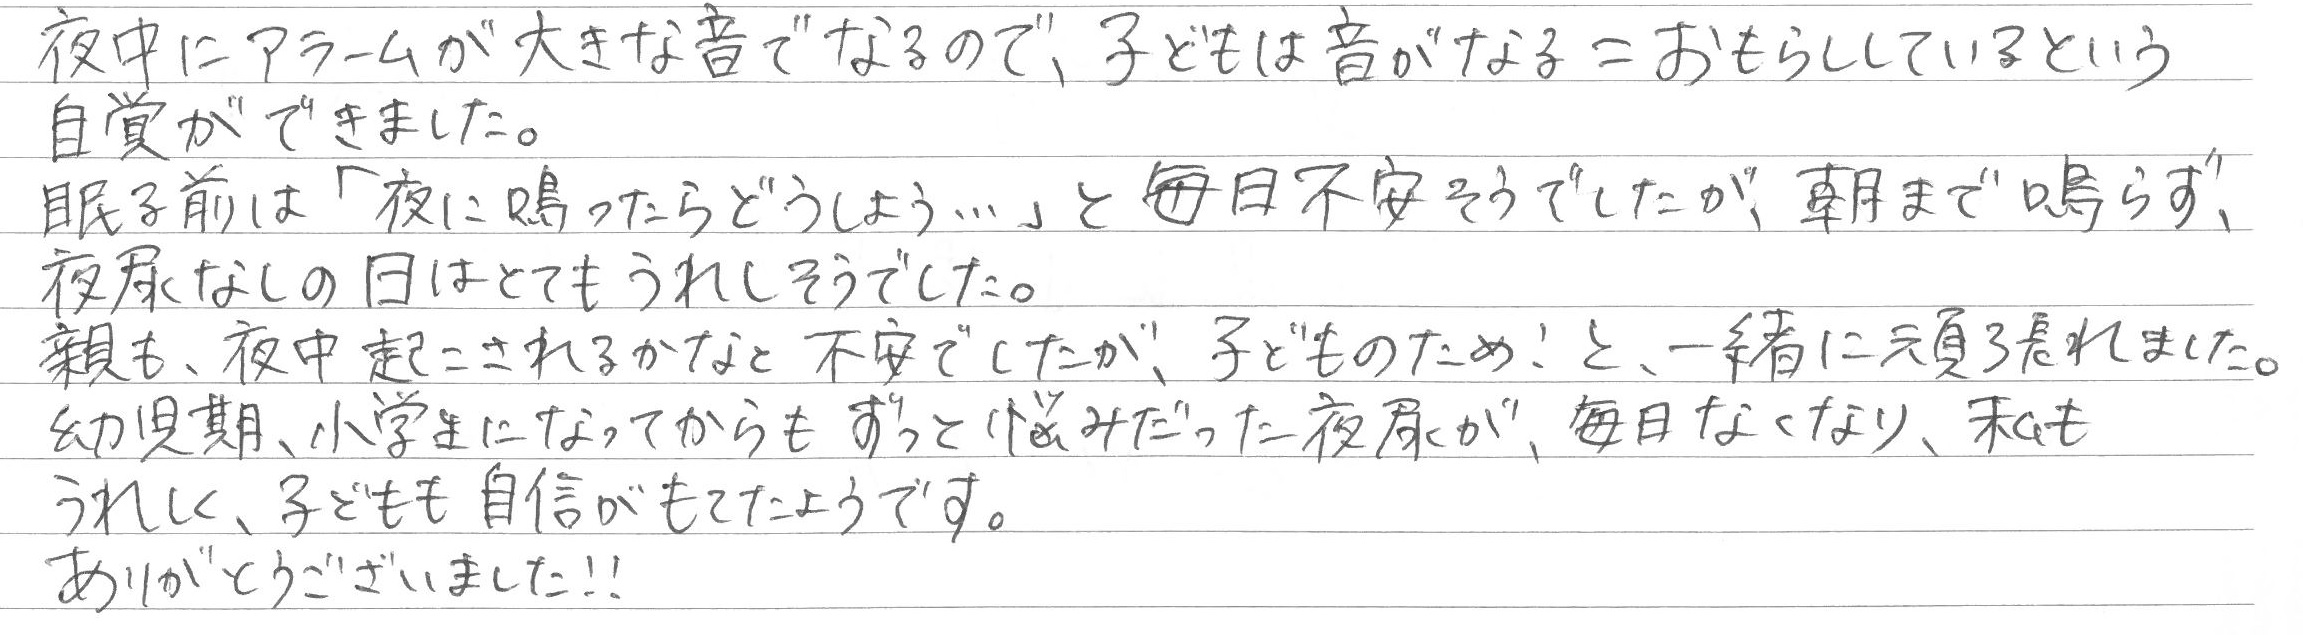 夜中にアラームが大きな音でなるので、子どもは音がなる＝おもらししているという
自覚ができました。
眠る前は「夜に鳴ったらどうしよう…」と毎日不安そうでしたが、朝まで鳴らず、
夜尿なしの日はとてもうれしそうでした。
親も、夜中起こされるかなと不安でしたが、子どものため！と、一緒に頑張れました。
幼児期、小学生になってからもずっと悩みだった夜尿が、毎日なくなり、私も
うれしく、子どもも自信がもてたようです。
ありがとうございました!!